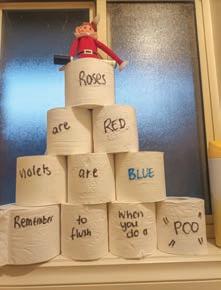 Roses
are RED
violets are BLUE
Remember to flush when you do a "POO"